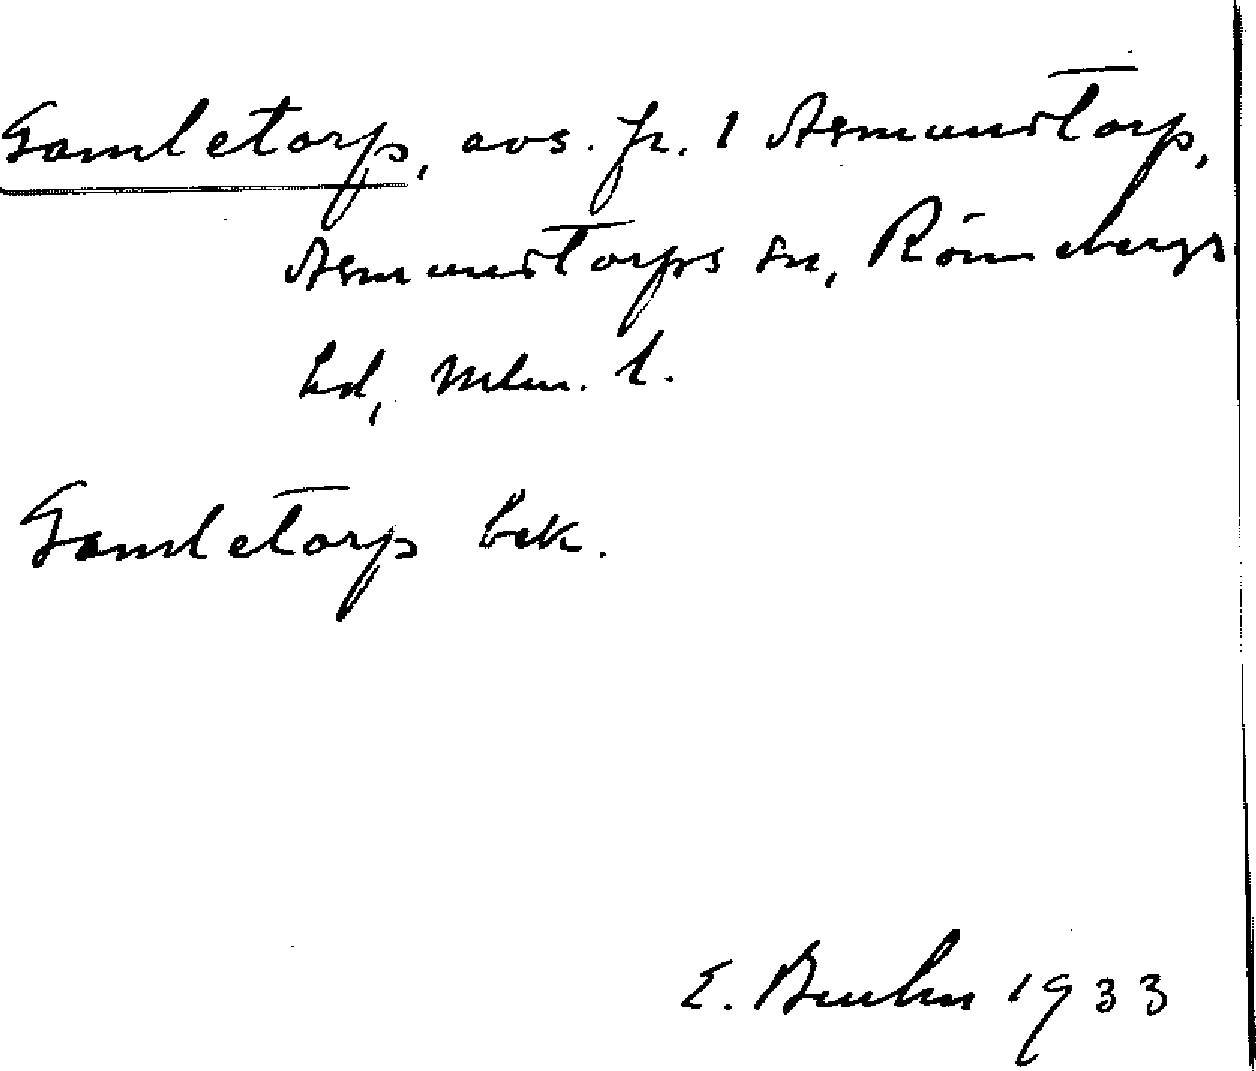 Gamletorp, avs. fr. 1 Asmundtorp,
Asmundtorps sn, Rönnebergs
hd, Mlm. l.
Gamletorp bek.
E. 1933